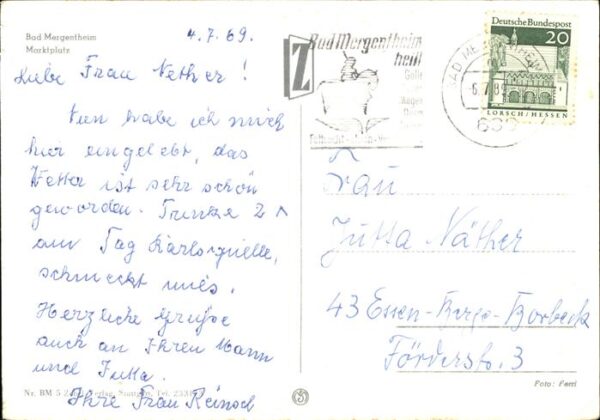 Bad Mergentheim
Marktplatz
4.7.69.
Liebe Frau Nether!
Nun habe ich mich
hier eingelebt, das
Wetter ist sehr schön
geworden. Trinke 2 x
am Tag Karlsquelle,
schmeckt mies.
Herzliche Grüße
auch an Ihren Mann
und Jutta.
Ihre Frau Reinsch
Nr. BM 5 Verlag, Stuttgart, Tel.
Z
Bad Mergentheim
heilt
Galle
Magen
Darm
BAD MERGENTHEIM
6.7.69
Deutsche Bundespost
20
LORSCH/HESSEN
Frau
Jutta Näther
43 Essen-Berge-Borbeck
Förderstr. 3
Foto: Feerl